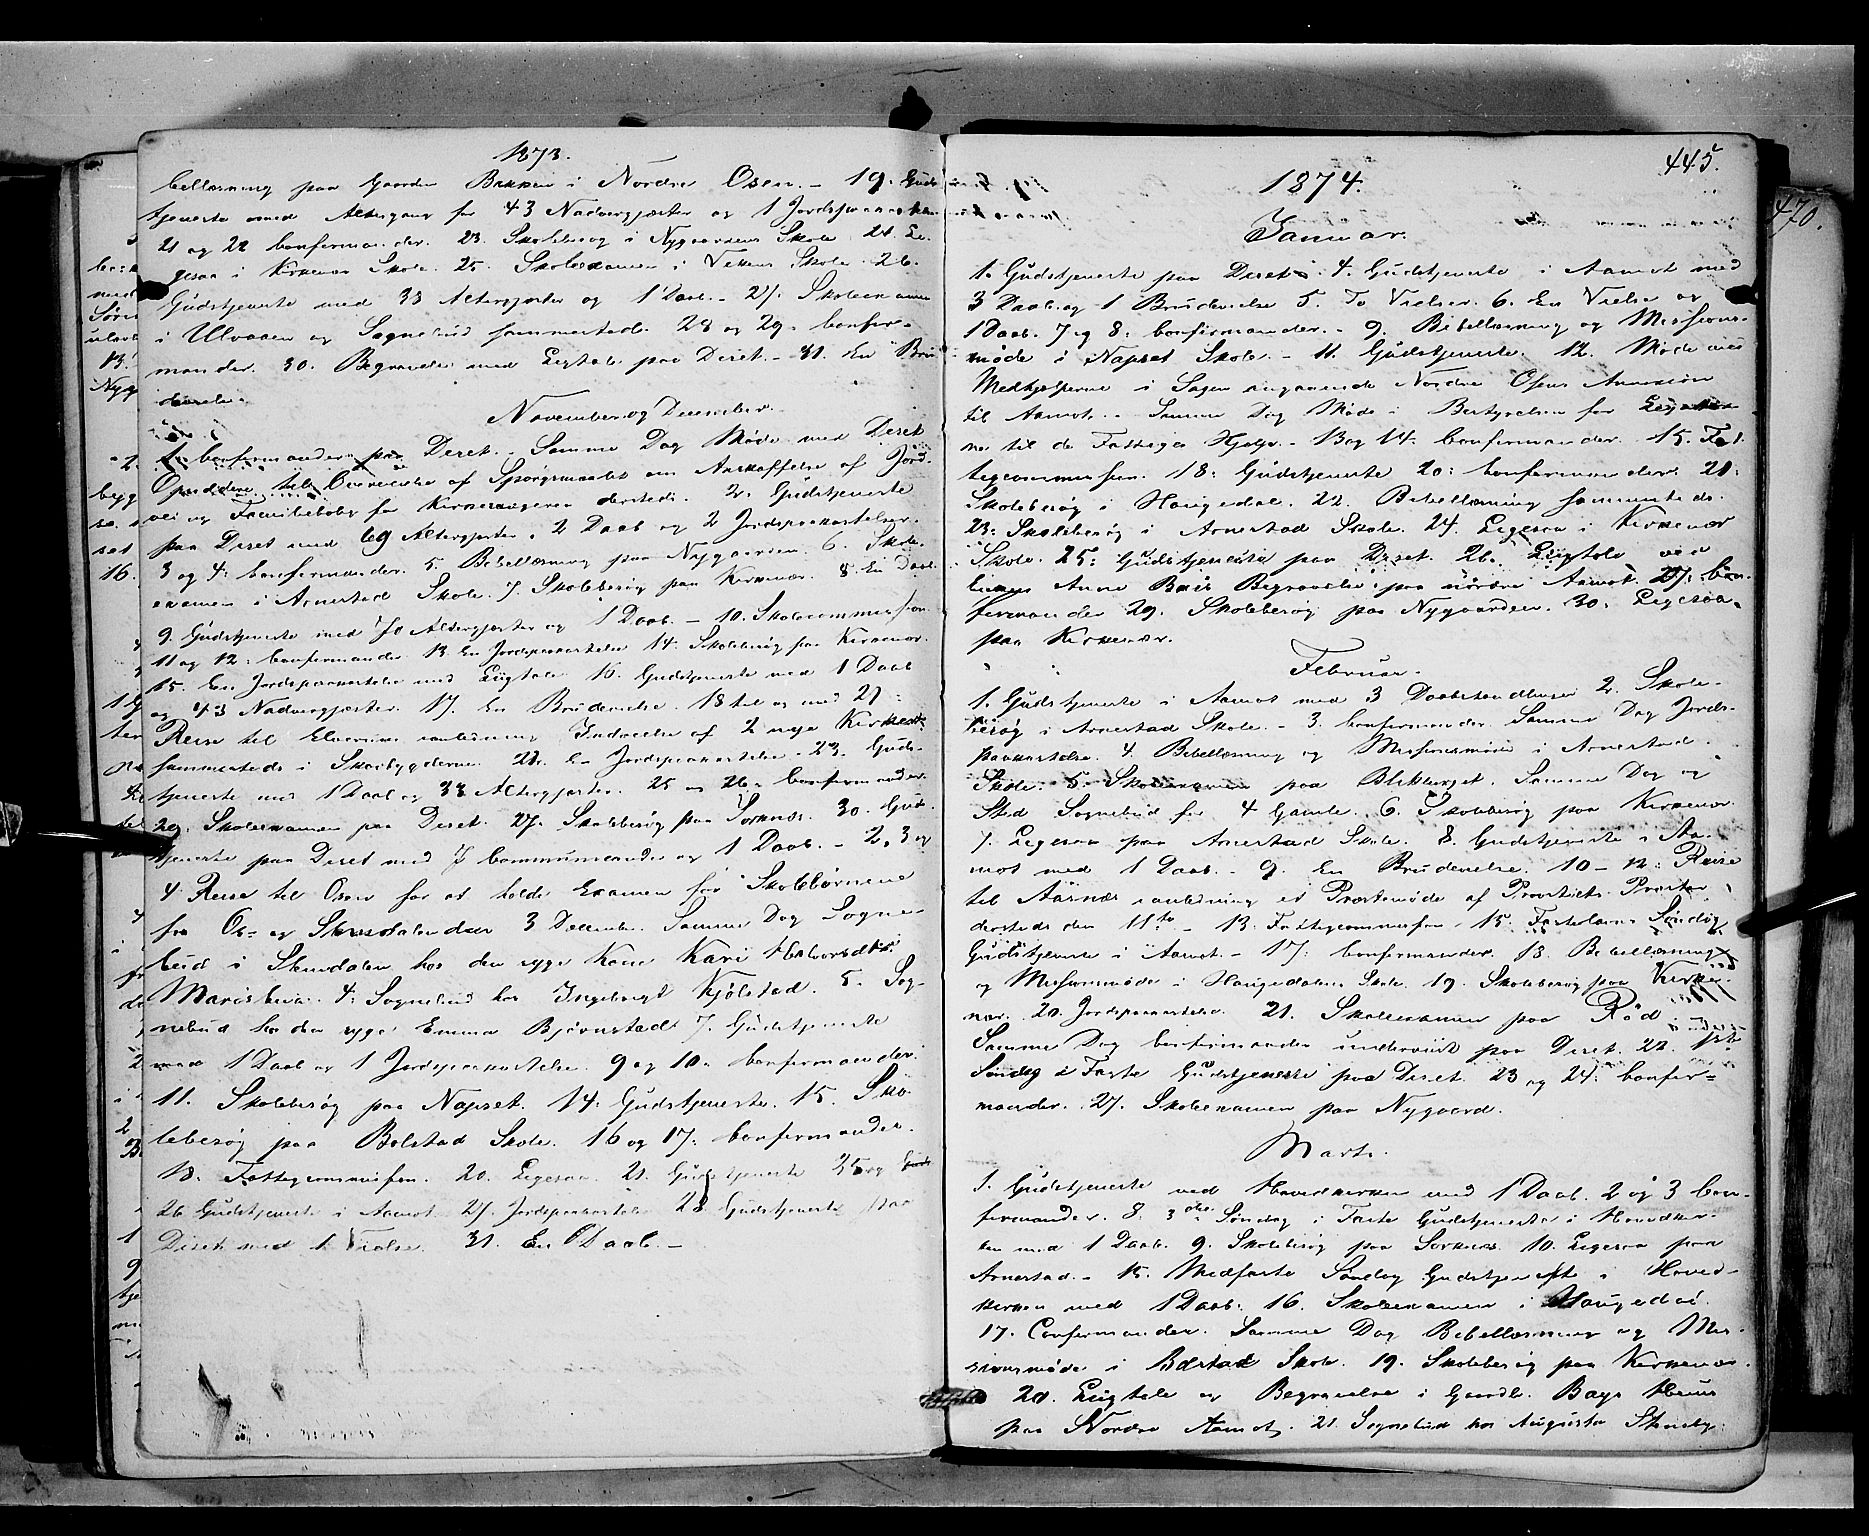 1873.
bellæsning paa Gaarden Bakken i Nordre Osen. - 19. Guds
tjeneste med Altergang for 43 Nadvergjæster og 1 Jordpaakastelse
21 og 22 Confirmander. 23. Skolebesøg i Nygaardens Skole 24. Li-
gesaa i Kirkenær Skole. 25. Skoleexamen i Skole. 26.
Gudstjeneste med 33 Altergjæster og 1 Daab. - 27. Skoleexamen
i Ulvaaen og Sognebud sammesteds. 28 og 29. Confir-
mander. 30. Begravelse med Ligtale paa Deset. - 31. En Bru
devielse.
November og December.
1. Confirmander paa Deset. Samme Dag Møde med Deset
Opsiddere til af Spørgsmaalet om Anskaffelse af Jord-
vei og Familiebolig for Kirkesangeren dersteds. 2. Gudstjeneste
paa Deset med 69 Altergjæster, 2 Daab og 2 Jordpaakastelser.
3 og 4. Confirmander. 5. Bibellæsning paa Nygaarden. 6. Skole-
examen i Arnestad Skole. 7. Skolebesøg paa Kirkenær. 8. En Daab
9. Gudstjeneste med 70 Altergjæster og 1 Daab. - 10. Skolecommission
11 og 12. Confirmander 13. En Jordpaakastelse 14. Skolebesøg paa Kirkenær.
15. En Jordpaakastelse med Ligtale 16. Gudstjeneste med 1 Daab
og 43 Nadvergjæster. 17. En Brudevielse. 18 til og med 21
Reise til Elverum i anledning Indvielse af 2 nye Kirker
sammesteds i Skovbygderne. 22. En Jordpaakastelse - 23. Guds-
tjeneste med 1 Daab og 33 Altergjæster. 25 og 26. Confirmander
29. Skoleexamen paa Deset. 27. Skolebesøg paa Sorknæs. 30. Gud-
tjeneste paa Deset med 7 Communicander og 1 Daab. - 2, 3 og
4. Reise til Osen for at holde Examen for Skolebørnene
fra Os- og Skrædalen den 3 December. Samme Dag Sogne-
bud i Skrædalen hos den syge Kone Kari Halvorsdtr.
4. Sognebud hos Ingeborg Kjølstad. 5. Sog-
nebud hos den syge Emma Bjørnstad. 7. Gudstjeneste
med 1 Daab og 1 Jordpaakastelse. 9 og 10. Confirmander.
11. Skolebesøg paa Napset. 14. Gudstjeneste. 15. Sko-
lebesøg paa Bolstad Skole. 16 og 17. Confirmander.
18. Fattigcommission. 20. Ligesaa. 21. Gudstjeneste 25 og
26 Gudstjeneste i Aamot 27. Jordpaakastelse 28 Gudstjeneste paa
Deset med 1 Vielse. 31. En Daab. -
445.
470.
1874.
Januar.
1. Gudstjeneste paa Deset. 4. Gudstjeneste i Aamot med
3 Daab og 1 Brudevielse 5. To Vielser. 6. En Vielse og
1 Daab. 7 og 8. Confirmander. - 9. Bibellæsning og Missions-
møde i Napset Skole. - 11. Gudstjeneste. 12. Møde med
Medhjelperne i Sagen angaaende Nordre Osens Annexion
til Aamot. - Samme Dag Møde i Bestyrelsen for
ne til de Fattiges Hjelp. - 13 og 14. Confirmander. 15. Fat-
tigcommission. 18. Gudstjeneste 20. Confirmander. 21.
Skolebesøg i Haugedal. 22. Bibellæsning sammesteds.
23. Skolebesøg i Arnestad Skole. 24. Ligesaa i Kirkenær
Skole. 25. Gudstjeneste paa Deset. 26. Ligtale ved
Anne Begravelse paa nordre Aamot. 27. Con-
firmander 29. Skolebesøg paa Nygaarden. 30. Ligesaa
paa Kirkenær.
Februar.
1. Gudstjeneste i Aamot med 3 Daabshandlinger 2. Skole-
besøg i Arnestad Skole. - 3. Confirmander. Samme Dag Jords-
paakastelse. 4. Bibellæsning og Missionsmøde i Arnestad
Skole. 5. Skoleexamen paa Blikberget. Samme Dag og
Sted Sognebud for 4 Gamle. 6. Skolebesøg paa Kirkenær.
7. Ligesaa paa Arnestad Skole. 8. Gudstjeneste i Aa-
mot med 1 Daab. - 9. En Brudevielse. 10 - 12. Reise
til Aasnæs i anledning et Præstemøde af Provstiets Præster
dersteds den 11te - 13. Fattigcommission. 15. Fastelavns Søndag
Gudstjeneste i Aamot. - 17. Confirmander. 18. Bibellæsning
og Missionsmøde i Haugedalens Skole. 19. Skolebesøg paa Kirke-
nær. 20. Jordspaakastelse. 21. Skoleexamen paa Rød.
Samme Dag Confirmander undervist paa Deset. 22. 1ste
Søndag i Faste Gudstjeneste paa Deset. 23 og 24. Confir-
mander. 27. Skoleexamen paa Nygaard.
Marts.
1. Gudstjeneste ved Hovedkirken med 1 Daab. 2 og 3 Con-
firmander. 8. 3die Søndag i Faste Gudstjeneste i Hovedkir-
ken med 1 Daab. 9. Skolebesøg paa Sorknæs. 10. Ligesaa paa
Arnestad. - 15. Midfaste Søndag Gudstjeneste i Hoved-
kirken med 1 Daab. 16. Skoleexamen i Haugedal.
17. Confirmander. Samme Dag Bibellæsning og Mis-
sionsmøde i Bolstad Skole. 19. Skolebesøg paa Kirkenær.
20. Ligtale og Begravelse i Gaardb. Huus
paa Nordre Aamot. 21. Sognebud hos Augusta